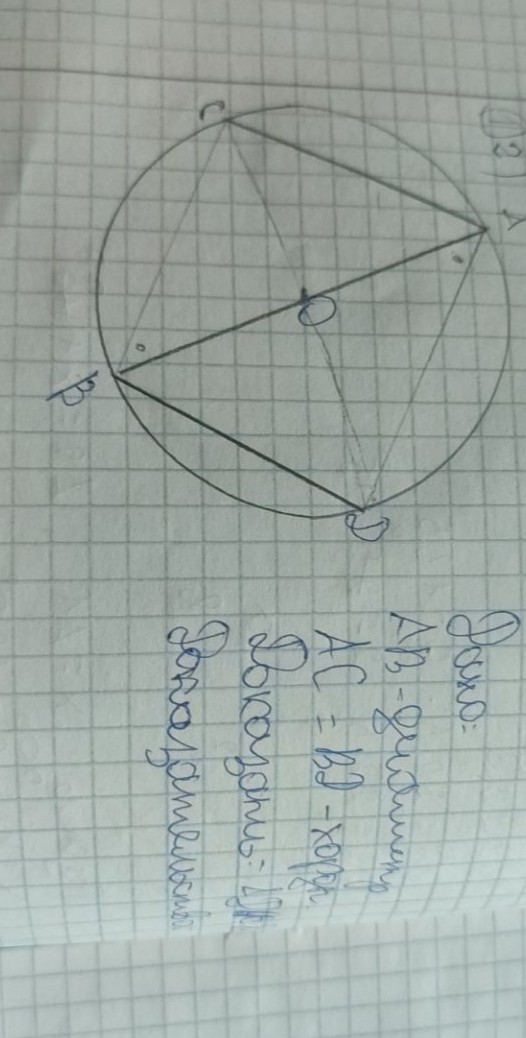 2)
A
C
O
B
D
Дано:
AB - диаметр
AC = BD - хорды
Доказать:
Доказательство